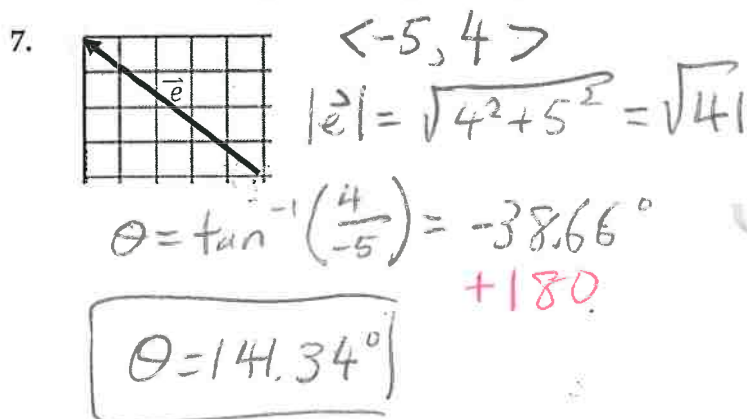 7.
<-5, 4>
e⃗
|e⃗| = √4² + 5² = √41
θ = tan⁻¹(4/-5) = -38.66°
+180
θ = 141.34°